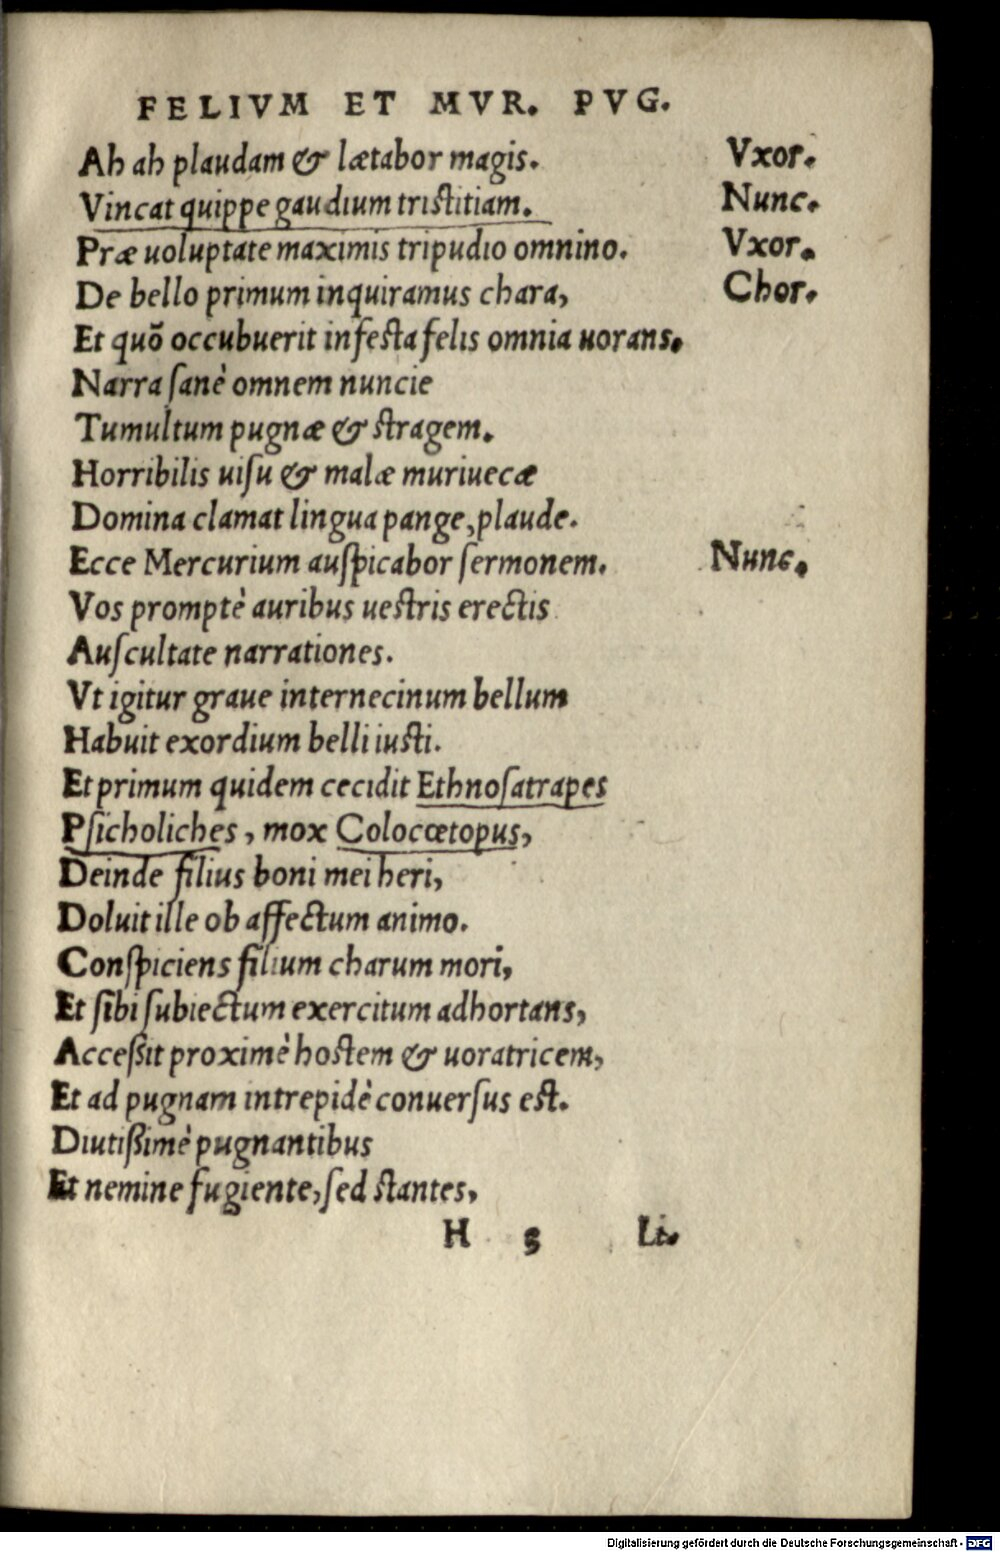 FELIVM ET MVR. PVG.
Ah ah plaudam & lætabor magis. Vxor.
Vincat quippe gaudium tristitiam. Nunc.
Præ uoluptate maximis tripudio omnino. Vxor.
De bello primum inquiramus chara, Chor.
Et quõ occubuerit infesta felis omnia uorans.
Narra ſanè omnem nuncie
Tumultum pugnæ & stragem.
Horribilis uiſu & malæ muriuecæ
Domina clamat lingua pange, plaude.
Ecce Mercurium auſpicabor ſermonem. Nunc.
Vos promptè auribus uestris erectis
Auſcultate narrationes.
Vt igitur graue internecinum bellum
Habuit exordium belli iusti.
Et primum quidem cecidit Ethnoſatrapes
Pſicholiches, mox Colocœtopus,
Deinde filius boni mei heri,
Doluit ille ob affectum animo.
Conſpiciens filium charum mori,
Et ſibi ſubiectum exercitum adhortans,
Acceßit proximè hostem & uoratricem,
Et ad pugnam intrepidè conuerſus est.
Diutißimè pugnantibus
Et nemine fugiente, ſed stantes,
H 5 Li.
Digitalisierung gefördert durch die Deutsche Forschungsgemeinschaft - DFG